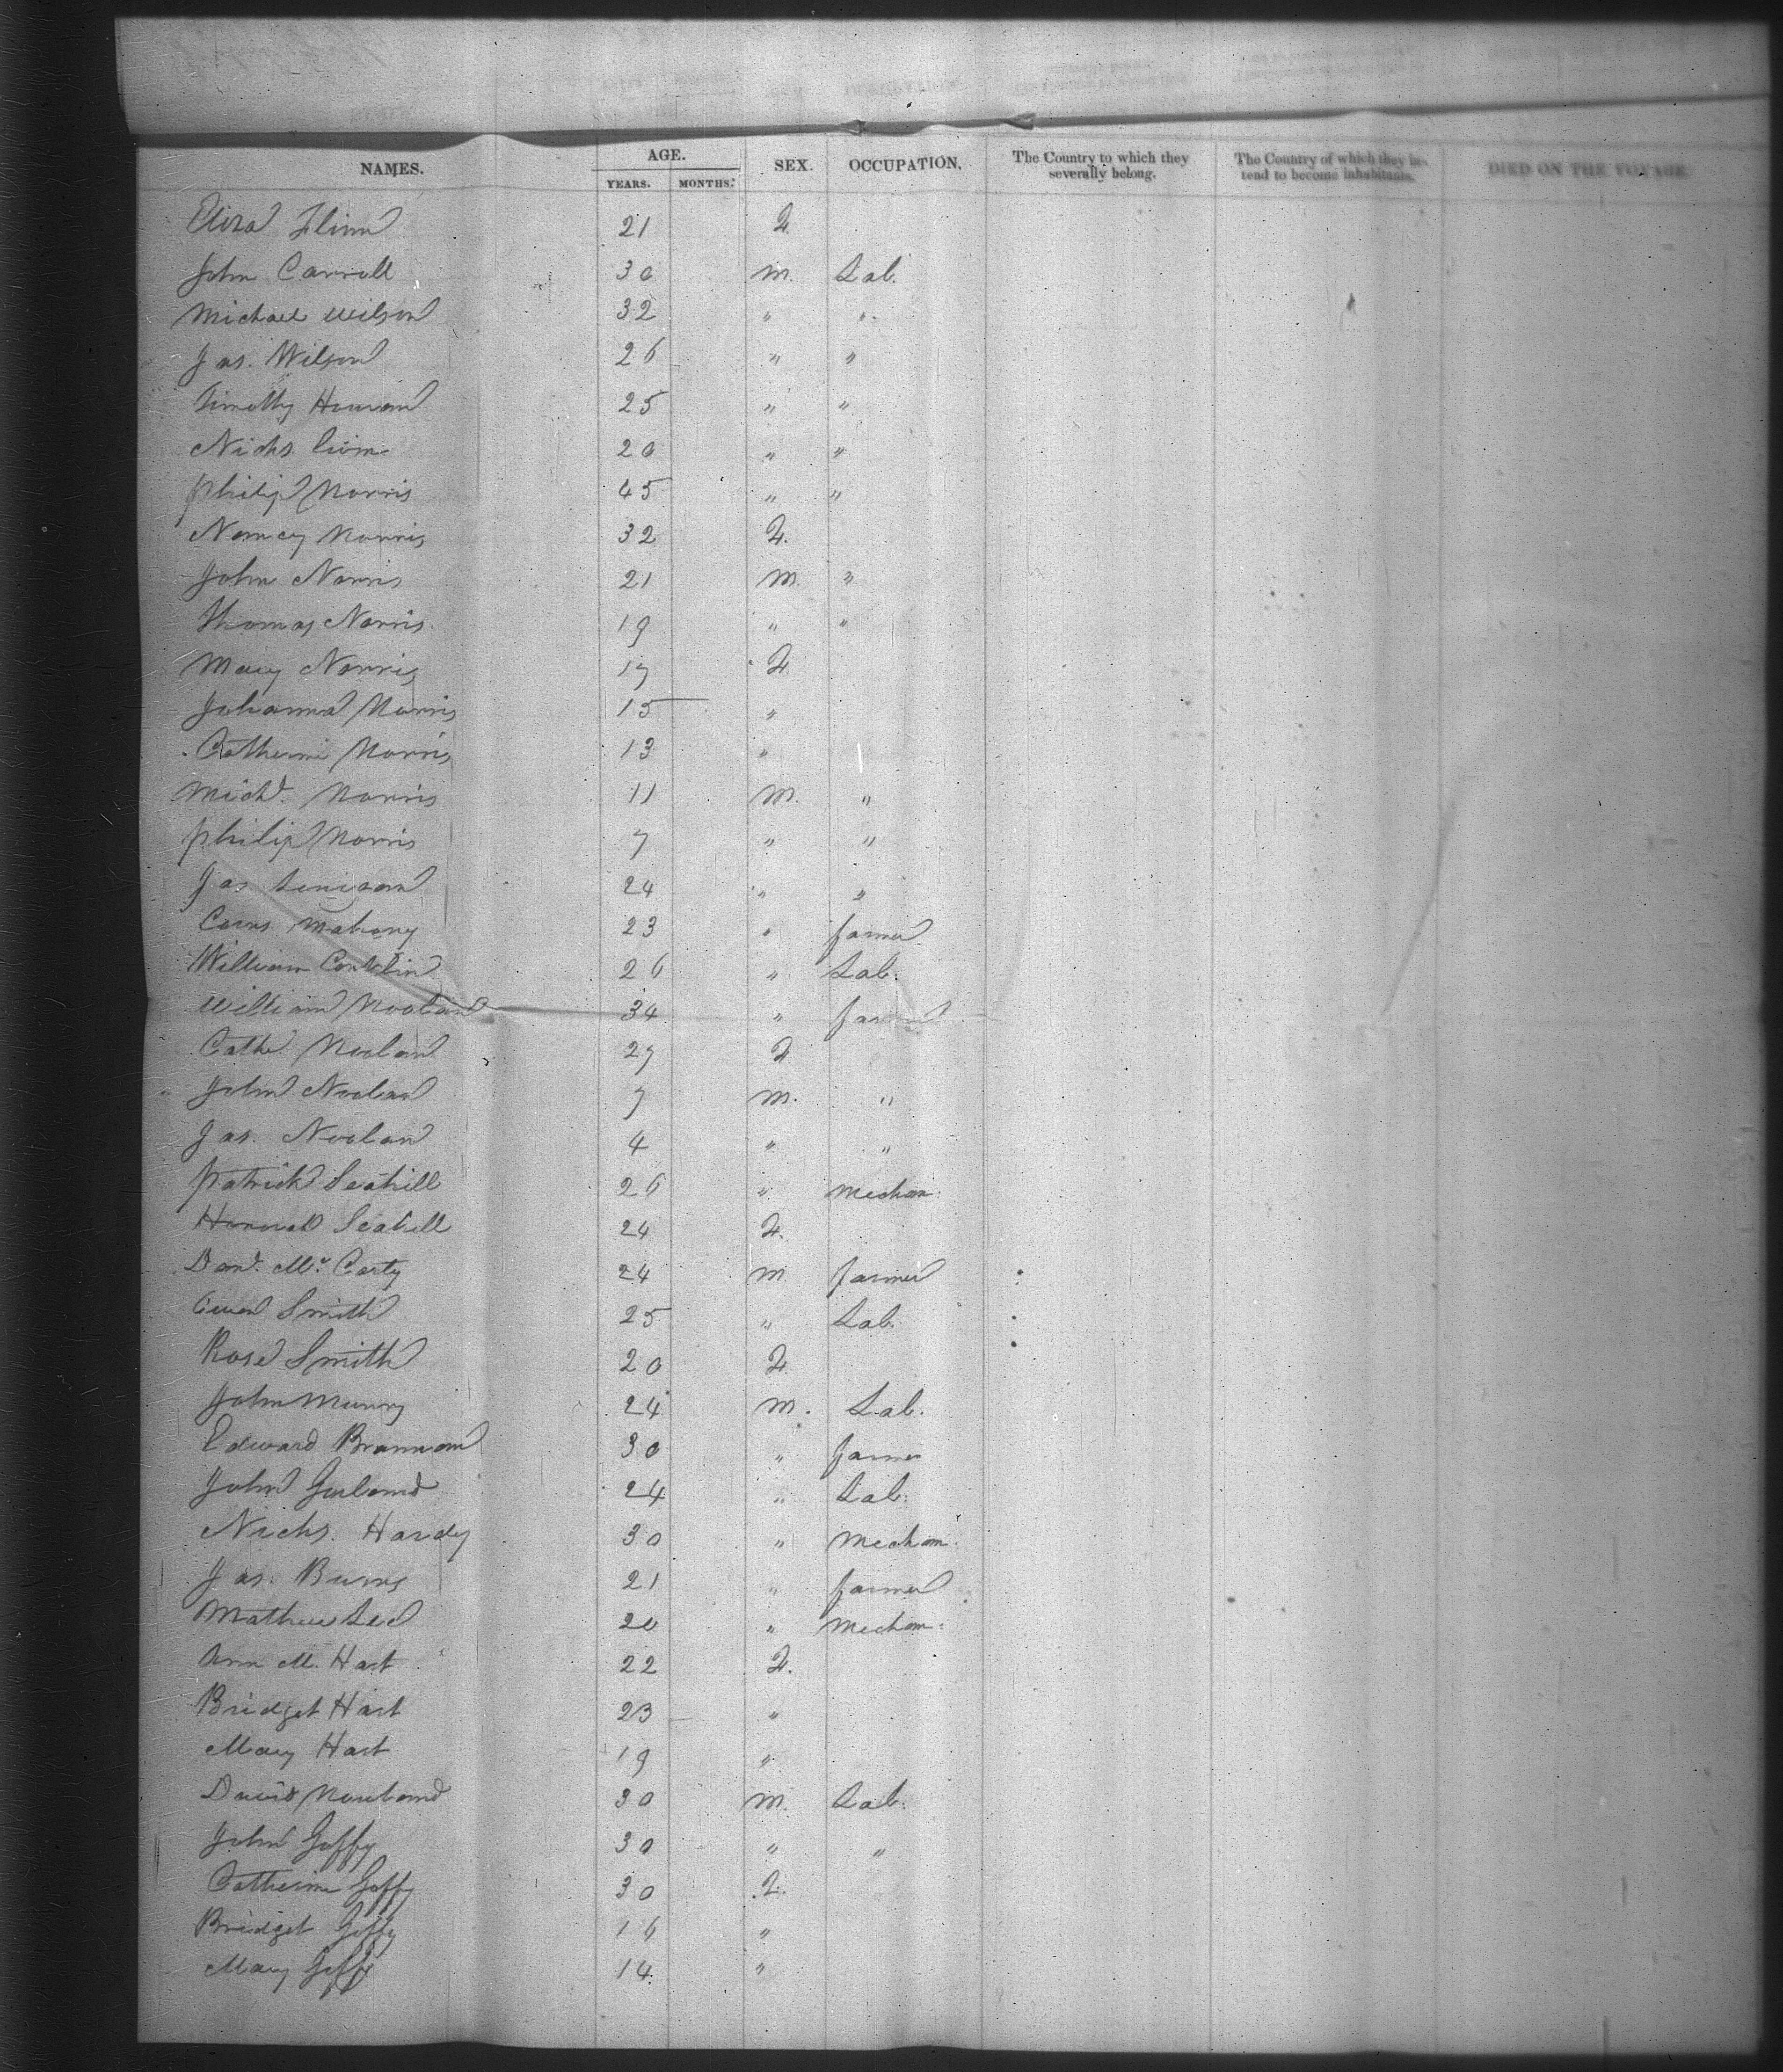 NAMES. AGE. SEX. OCCUPATION. The Country to which they severally belong. The Country of which they intend to become inhabitants. DIED ON THE VOYAGE.
YEARS. MONTHS.
Eliza Flinn 21 F.
John Carroll 30 M. Lab.
Michael Wilson 32 " "
Jas. Wilson 26 " "
Timothy 25 " "
Nichs 20 " "
Philip Norris 45 " "
Nancy Norris 32 F.
John Norris 21 M. "
Thomas Norris 19 " "
Mary Norris 17 F.
Johanna Norris 15 "
Catherine Norris 13 "
Michl. Norris 11 M. "
Philip Norris 7 " "
Jas 24 " "
Corns Mahony 23 " farmer
William Conklin 26 " Lab.
William Noolan 34 " farmer
Cathe Noolan 27 F
John Noolan 7 M. "
Jas. Noolan 4 " "
Patrick Scahill 26 " Mechan.
Hannah Scahill 24 F.
Danl. Mc. Carty 24 M. farmer
Owen Smith 25 " Lab.
Rose Smith 20 F.
John Murry 24 M. Lab.
Edward Brannan 30 " farmer
John Garland 24 " Lab.
Nichs. Hardy 30 " Mechan.
Jas. Burns 21 " farmer
Mathew Lee 20 " Mechan.
Ann M. Hart 22 F.
Bridget Hart 23 "
Mary Hart 19 "
David 30 M. Lab.
John Goffy 30 " "
Catherine Goffy 30 F.
Bridget Goffy 16 "
Mary Goffy 14 "